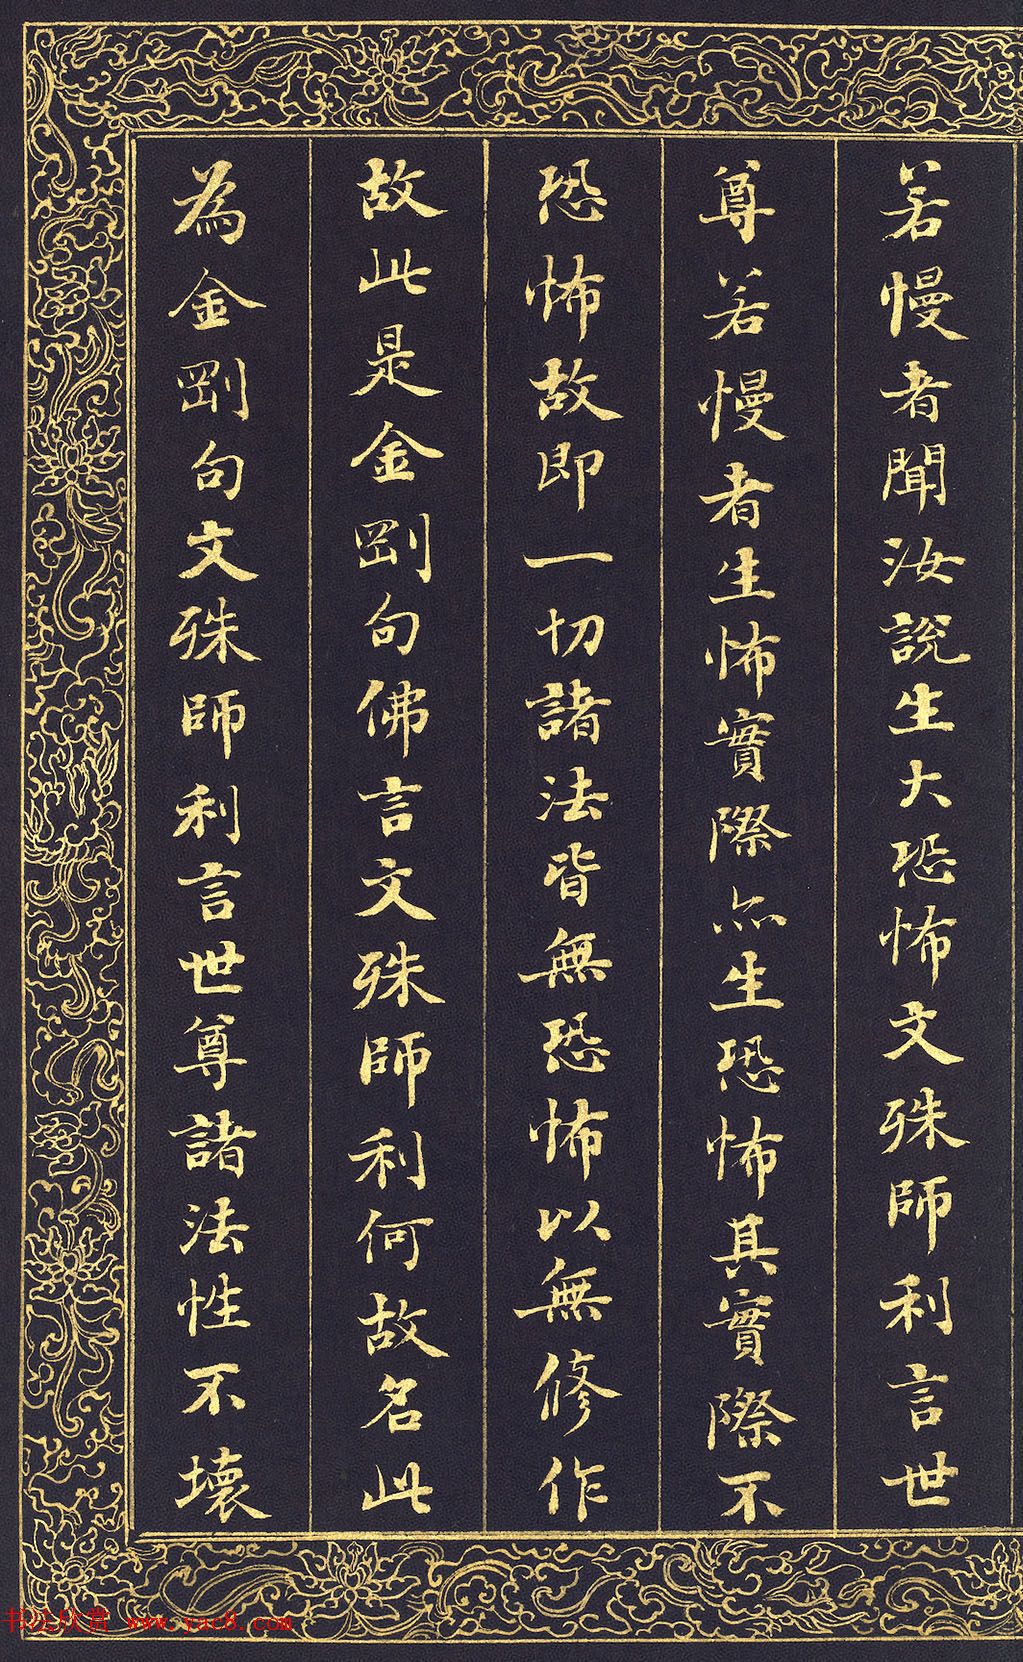 若慢者聞汝説生大恐怖文殊師利言世
尊若慢者生怖實際亦生恐怖其實際不
恐怖故即一切諸法皆無恐怖以無修作
故此是金剛句佛言文殊師利何故名此
為金剛句文殊師利言世尊諸法性不壞
书法欣赏 www.yac8.com